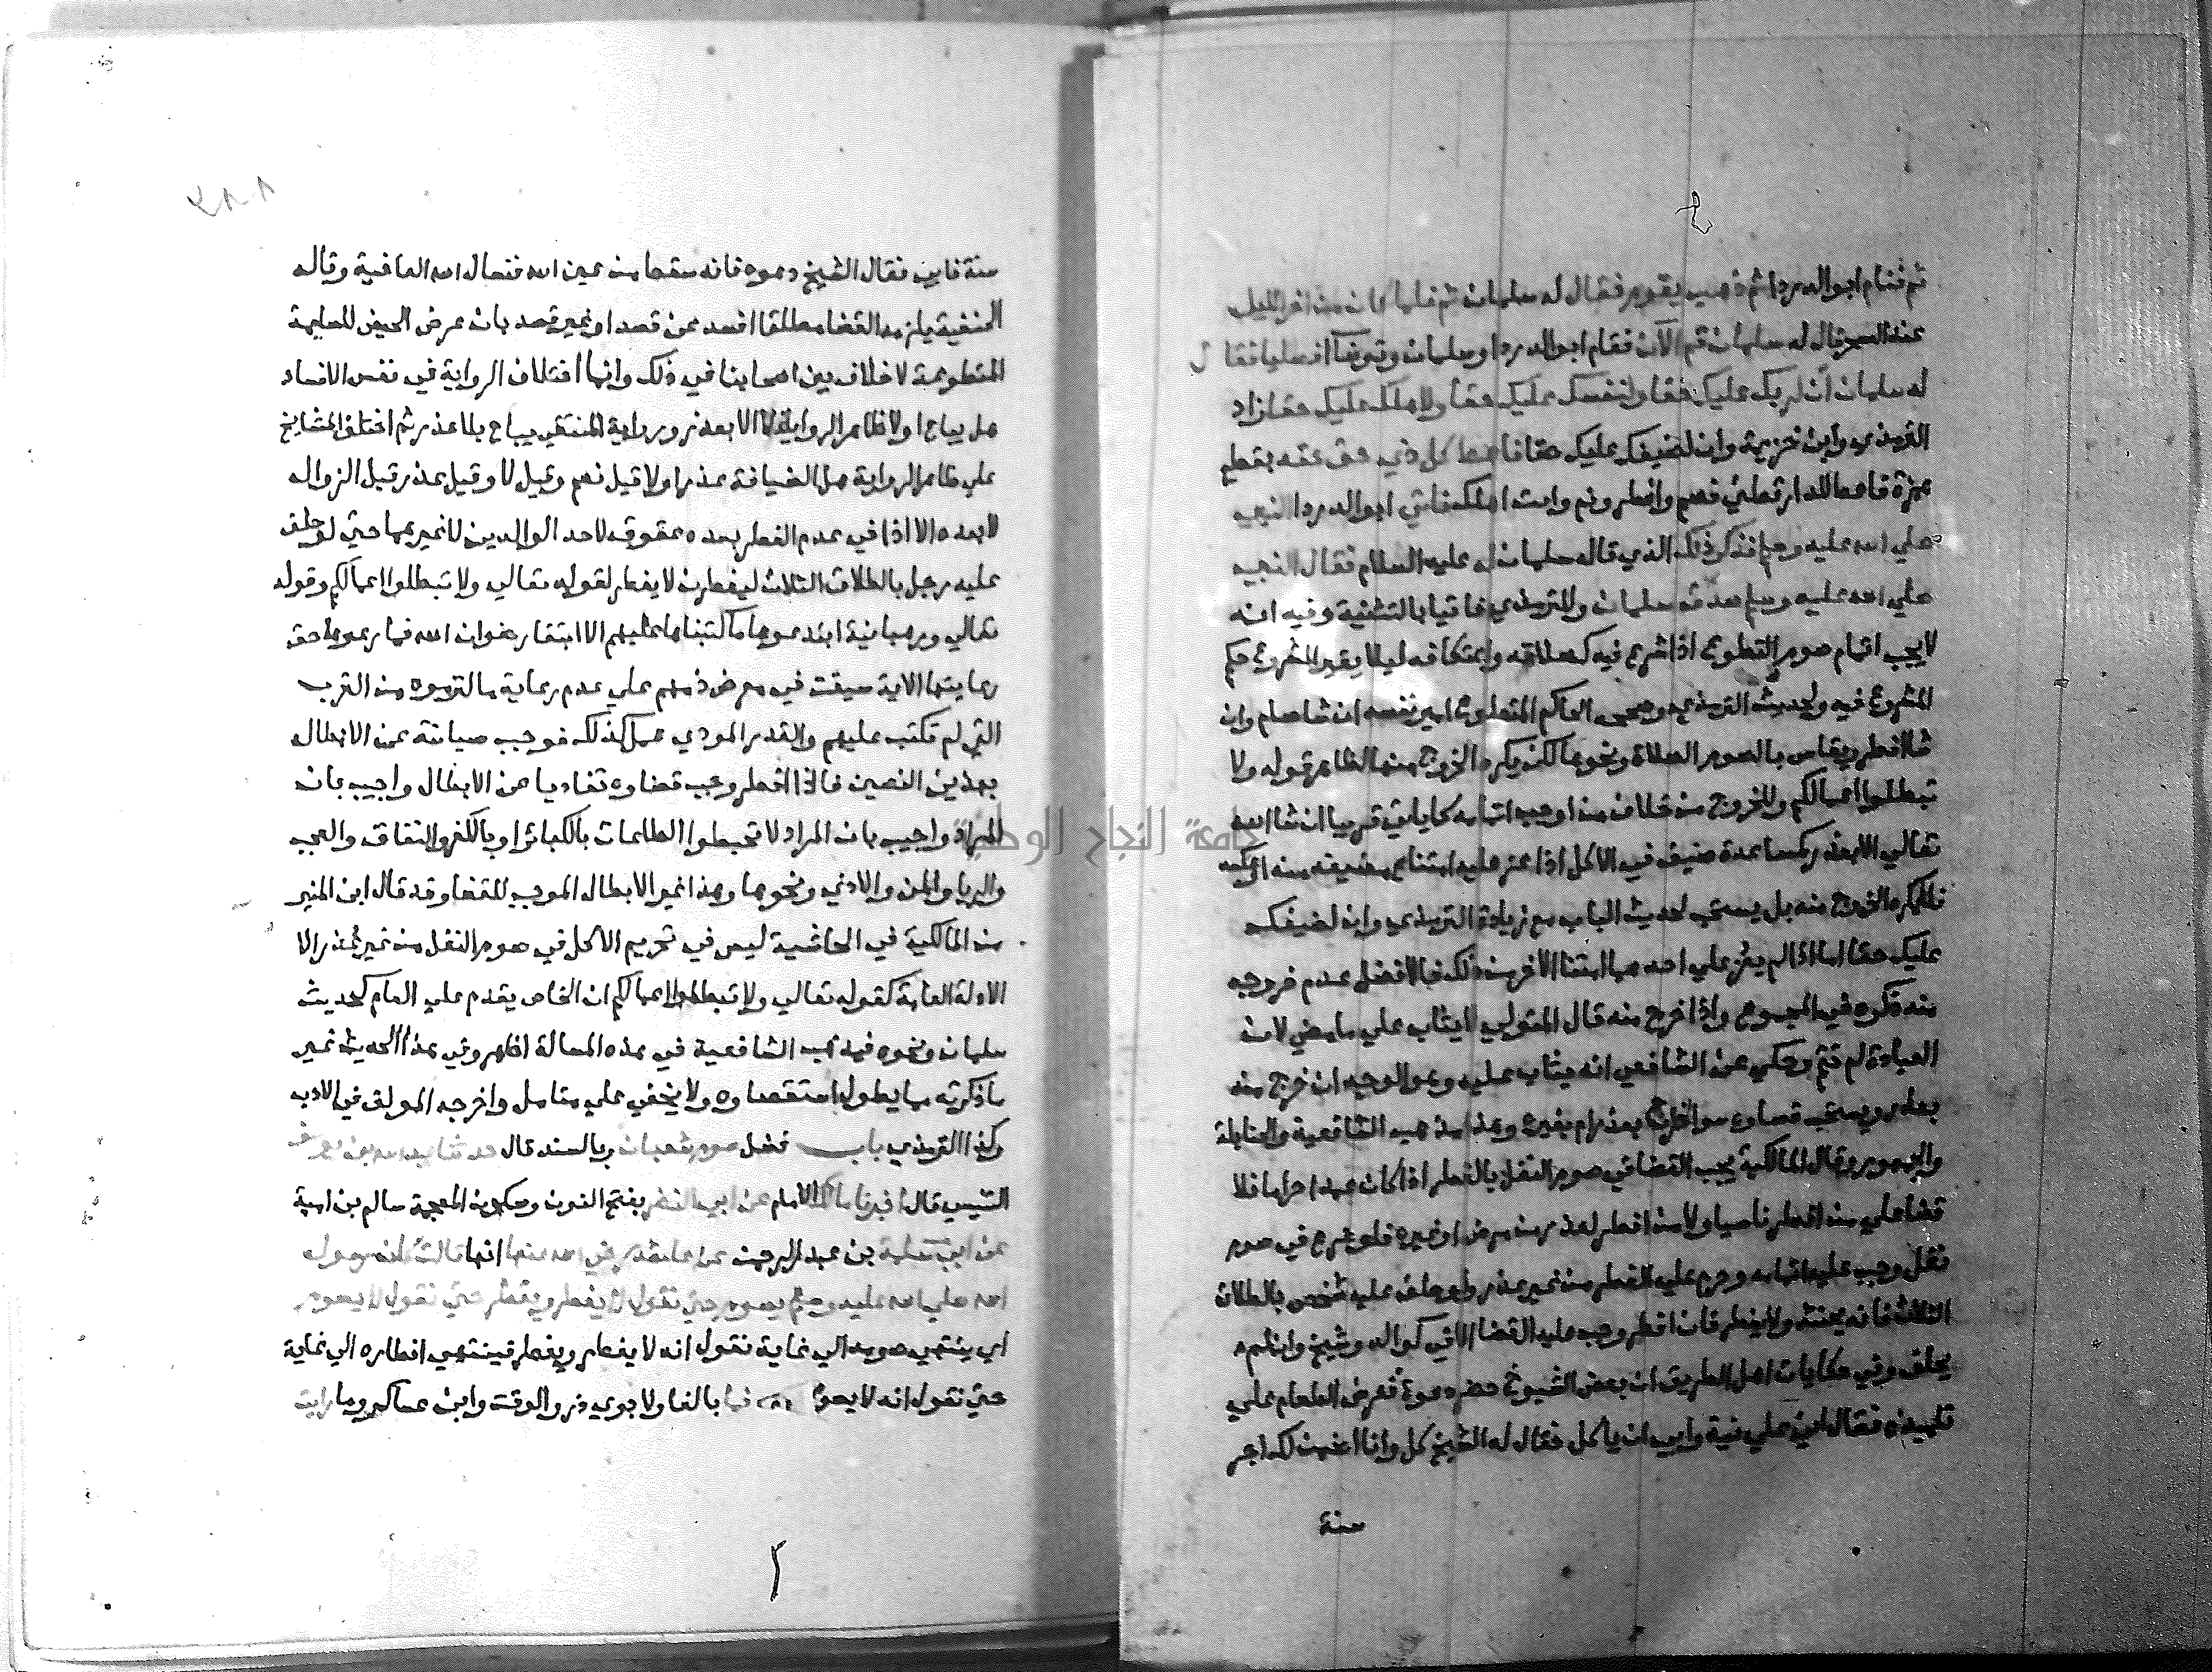 ثم فنام ابو الدردا ثم ذهب يقوم فقال له سلمان نم فلما كان من اخر الليل
عند السحر قال له سلمان قم الآن فقام ابو الدردا وسلمان وتوضآ فصليا فقال
له سلمان ان لربك عليك حقا ولنفسك عليك حقا ولاهلك عليك حقا زاد
الترمذي وابن خزيمة وان لضيفك عليك حقا فاعط كل ذي حق حقه بقطع
همزة فاعط للدارقطني فصم وافطر ونم وايت اهلك فاتي ابو الدردا النبي
صلي الله عليه وسلم فذكر ذلك الذي قاله سلمان له عليه السلام فقال النبي
صلي الله عليه وسلم صدق سلمان وللترمذي فاتيا بالتثنية وفيه انه
لا يجب اتمام صوم التطوع اذا شرع فيه كصلاته واعتكافه ليلا يغير الشروع حكم
المشروع فيه ولحديث الترمذي وصححه الحاكم المتطوع امير نفسه ان شا صام وان
شا افطر ويقاس بالصوم الصلاة ونحوها لكن يكره الخروج منها لظاهر قوله ولا
تبطلوا اعمالكم وللخروج من خلاف من اوجب اتمامه كما ياتي قريبا ان شا الله
تعالي الا بعذر كمساعدة ضيف في الاكل اذا عز عليه امتناع مضيفه منه او عكسه
فلا يكره الخروج منه بل يستحب لحديث الباب مع زيادة الترمذي وان لضيفك
عليك حقا اما اذا لم يعز علي احدهما امتناع الاخر من ذلك فالافضل عدم خروجه
منه ذكره في المجموع واذا خرج منه قال المتولي لا يثاب علي ما مضي لان
العبادة لم تتم وحكي عن الشافعي انه يثاب عليه وهو الوجه ان خرج منه
بعذر ويستحب قضاوه سوا خرج بعذر ام بغيره وهذا مذهب الشافعية والحنابلة
والجمهور وقال المالكية يجب القضا في صوم النفل بالفطر اذا كان عمدا حراما فلا
قضا علي من افطر ناسيا ولا من افطر لعذر من مرض او غيره فلو شرع في صوم
نفل وجب عليه اتمامه وحرم عليه الفطر من غير عذر ولو حلف عليه شخص بالطلاق
الثلاث فانه يحنثه ولا يفطر فان افطر وجب عليه القضا الا في كوالد وشيخ وان لم
يحلف وفي حكايات اهل الطريق ان بعض الشيوخ حضر دعوة فعرض الطعام علي
تلميذه فقال اني علي نية وابي ان ياكل فقال له الشيخ كل وانا اضمن لك اجر
سنة
سنة فابي فقال الشيخ دعوه فانه سقط من عين الله فنسال الله العافية وقال
الحنفية يلزمه القضا مطلقا افسد عن قصد او غير قصد بان عرض الحيض للصايمة
المتطوعة لا خلاف بين اصحابنا في ذلك وانما اختلاف الرواية في نفس الافساد
هل يباح اولا ظاهر الرواية لا الا بعذر ورواية المنتقي يباح بلا عذر ثم اختلف المشايخ
علي ظاهر الرواية هل الضيافة عذر اولا قيل نعم وقيل لا وقيل عذر قبل الزوال
لا بعده الا اذا في عدم الفطر بعده عقوق لاحد الوالدين لا غيرهما حتي لو حلف
عليه رجل بالطلاق الثلاث ليفطرن لا يفطر لقوله تعالي ولا تبطلوا اعمالكم وقوله
تعالي ورهبانية ابتدعوها ما كتبناها عليهم الا ابتغا رضوان الله فما رعوها حق
رعايتها الاية سيقت في معرض ذمهم علي عدم رعاية ما التزموه من القرب
التي لم تكتب عليهم والقدر المودي عمل كذلك فوجب صيانته عن الابطال
بهذين النصين فاذا افطر وجب قضاوه تفاديا عن الابطال واجيب بان
المراد واجيب بان المراد لا تحبطوا الطاعات بالكبائر او بالكفر والنفاق والعجب
والريا والمن والاذي ونحوها وهذا غير الابطال الموجب للقضا وقد قال ابن المنير
من المالكية في الحاشية ليس في تحريم الاكل في صوم النفل من غير عذر الا
الادلة العامة كقوله تعالي ولا تبطلوا اعمالكم ان الخاص يقدم علي العام كحديث
سلمان ونحوه فمذهب الشافعية في هذه المسالة اظهر وفي هذا الحديث غير
ما ذكرته مما يطول استقصاوه ولا يخفي علي متامل واخرجه المولف في الادب
وكذا الترمذي باب فضل صوم شعبان وبالسند قال حدثنا عبد الله بن يوسف
التنيسي قال اخبرنا مالك الامام عن ابي النضر بفتح النون وسكون المعجمة سالم بن امية
عن ابي سلمة بن عبد الرحمن عن عايشة رضي الله عنها انها قالت كان رسول
الله صلي الله عليه وسلم يصوم حتي نقول لا يفطر ويفطر حتي نقول لا يصوم
اي ينتهي صومه الي غاية نقول انه لا يفطر ويفطر فينتهي افطاره الي غاية
حتي نقول انه لا يصوم فما بالفا ولابوي ذر والوقت وابن عساكر وما رايت
جامعة النجاح الوطنية